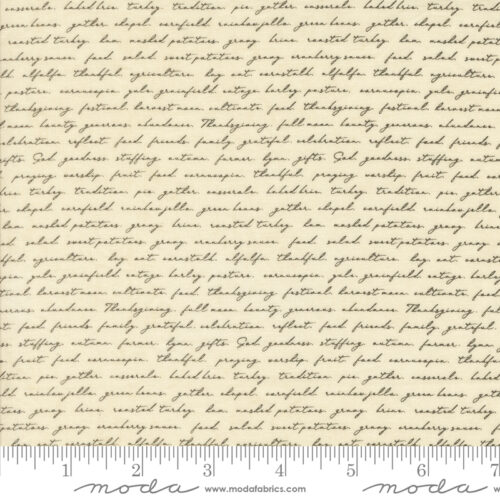 casserole. baked brie. turkey. tradition. pie. gather. casserole. baked brie. turkey. tradition
chapel. cornfield. rainbow jello. green beans. gather. chapel. cornfield.
roasted turkey. ham. mashed potatoes. gravy. brine. roasted turkey. ham. mashed potatoes.
cranberry sauce. food. salad. sweet potatoes. gravy. cranberry sauce. food. salad. sweet
alfalfa. thankful. agriculture. hay. oat. cornstalk. alfalfa. thankful. agriculture.
pasture. cornucopia. yule. grainfield. cottage. barley. pasture. cornucopia. yule. grainfield
Thanksgiving. festival. harvest moon. cultivate. food. thanksgiving. festival. harvest moon.
bounty. generous. abundance. Thanksgiving. full moon. bounty. generous. abundance.
celebration. reflect. food. friends. family. grateful. celebration. reflect. food. friends.
gifts. God. goodness. stuffing. autumn. farmer. hymn. gifts. God. goodness. stuffing. autumn
praying. worship. fruit. food. cornucopia. thankful. praying. worship. fruit. food
brie. turkey. tradition. pie. gather. casserole. baked brie. turkey. tradition. pie. gather
chapel. cornfield. rainbow jello. green beans. gather. chapel. cornfield. rainbow jello.
ham. mashed potatoes. gravy. brine. roasted turkey. ham. mashed potatoes. gravy. brine
food. salad. sweet potatoes. gravy. cranberry sauce. food. salad. sweet potatoes. gravy.
agriculture. hay. oat. cornstalk. alfalfa. thankful. agriculture. hay. oat.
yule. grainfield. cottage. barley. pasture. cornucopia. yule. grainfield. cottage
harvest moon. cultivate. food. thanksgiving. festival. harvest moon. cultivate. food
abundance. Thanksgiving. full moon. bounty. generous. abundance. Thanksgiving.
food. friends. family. grateful. celebration. reflect. food. friends. family. grateful.
stuffing. autumn. farmer. hymn. gifts. God. goodness. stuffing. autumn. farmer. hymn
fruit. food. cornucopia. thankful. praying. worship. fruit. food. cornucopia. thankful
pie. gather. casserole. baked brie. turkey. tradition. pie. gather. casserole. baked
cornfield. rainbow jello. green beans. gather. chapel. cornfield. rainbow jello. green beans
gravy. brine. roasted turkey. ham. mashed potatoes. gravy. brine. roasted turkey.
gravy. cranberry sauce. food. salad. sweet potatoes. gravy. cranberry sauce. food
hay. oat. cornstalk. alfalfa. thankful. agriculture. hay. oat. cornstalk
1 2 3 4 5 6 7
moda www.modafabrics.com moda